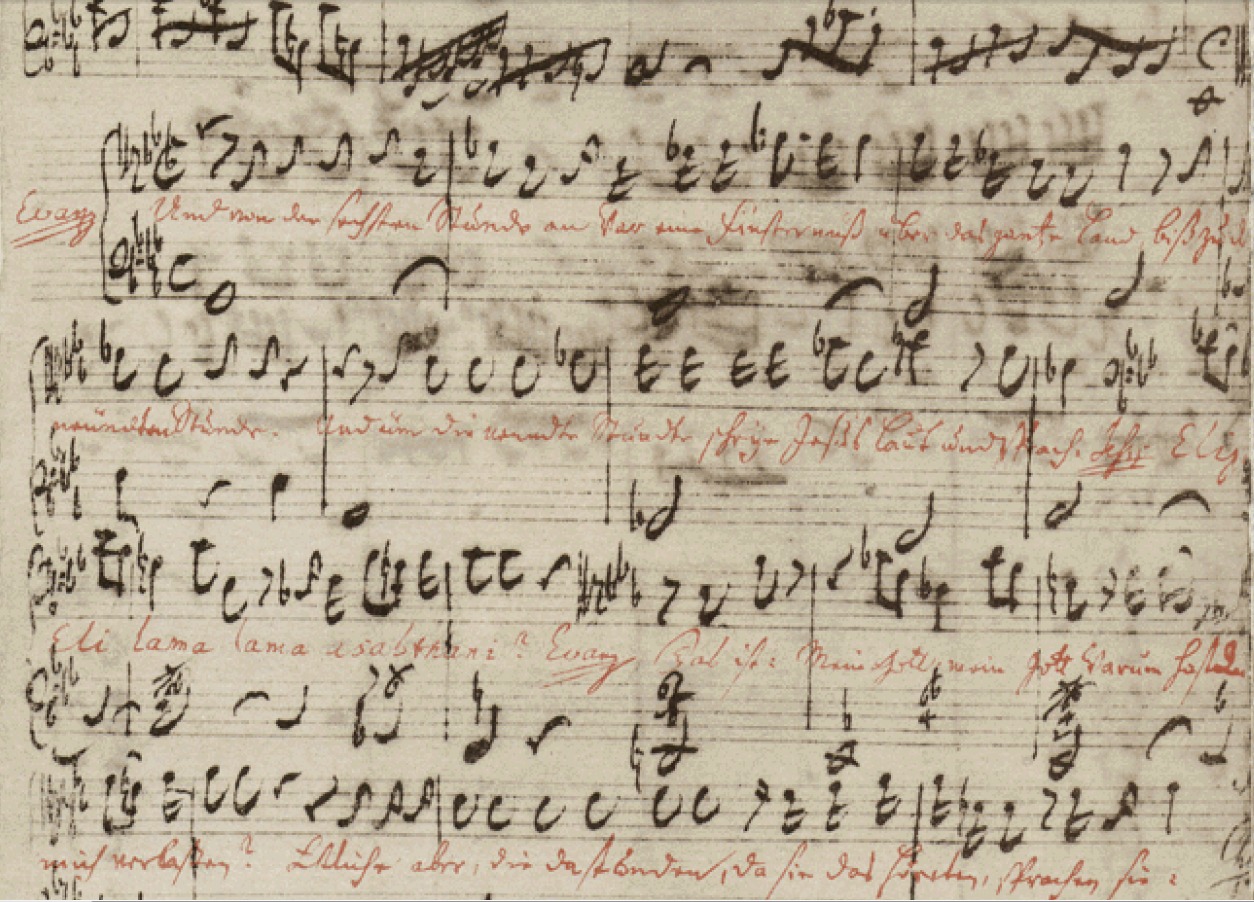 Evang Und von der sechsten Stunde an war eine Finsterniß über das gantze Land biß zu d
neündten Stunde. Und üm die neundte Stundte schrye Jesus laut und sprach. Jesus Eli,
Eli lama lama asabthani? Evang Das ist: Mein Gott, mein Gott warum hastu
mich verlaßen? Etliche aber, die da stunden, da sie das höreten, sprachen sie: